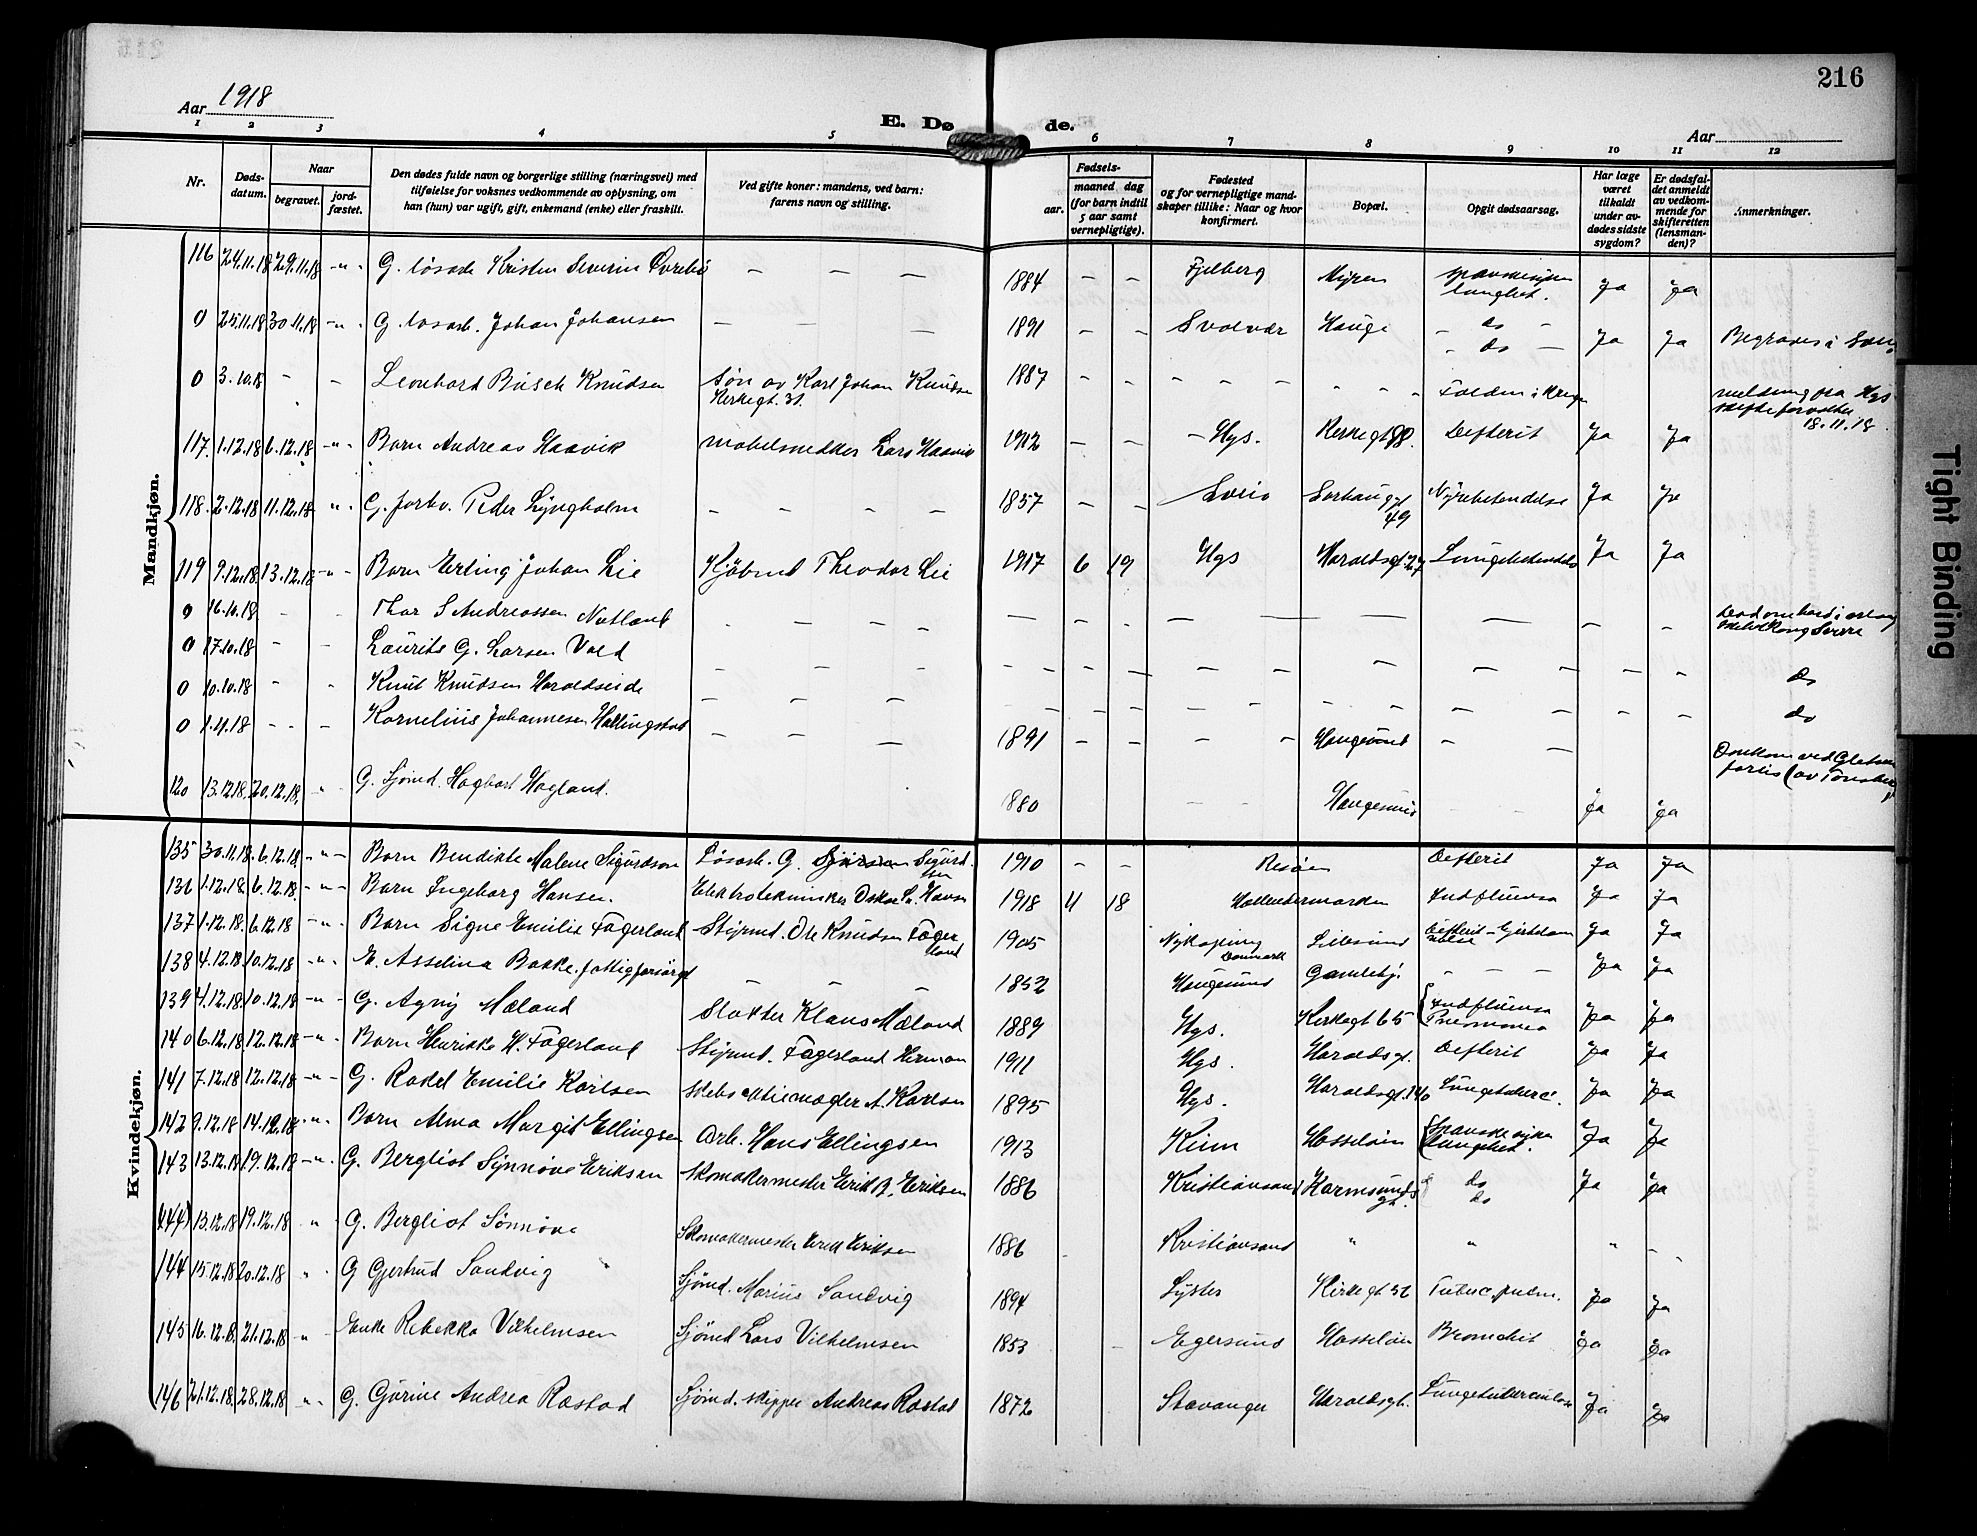 216
Aar 1918
E. Dø de.
Aar
1 2 3 4 5 6 7 8 9 10 11 12
Nr.
Døds-
datum.
Naar
begravet.
jord-
fæstet.
Den dødes fulde navn og borgerlige stilling (næringsvei) med
tilføielse for voksnes vedkommende av oplysning, om
han (hun) var ugift, gift, enkemand (enke) eller fraskilt.
Ved gifte koner: mandens, ved barn:
farens navn og stilling.
Fødsels-
aar.
maaned dag
(for barn indtil
5 aar samt
vernepligtige).
Fødested
og for vernepligtige mand-
skaper tillike: Naar og hvor
konfirmert.
Bopæl.
Opgit dødsaarsag.
Har læge
været
tilkaldt
under av-
dødes sidste
sygdom?
Er dødsfal-
det anmeldt
av vedkom-
mende for
skifteretten
(lensman-
den)?
Anmerkninger.
Mandkjøn.
116 24.11.18 29.11.18 -"- G. løsarb. Kristen Severin Øvrebö — — — 1884 — — Fjelberg Myren spanskesyken Ja Ja
lunghet.
0 25.11.18 30.11.18 -"- G. løsarb. Johan Johansen — — — 1891 — — Svolvær Hauge — do — Ja Ja Begraves i
— do —
0 3.10.18 - - Leonhard Busch Knudsen Søn av Karl Johan Knudsen 1887 - - - - - - Falden i krigen melding fra Hgs
Kirkegt. 31. skifteforvalter
18.11.18
117. 1.12.18 6.12.18 -"- Barn Andreas Haavik møbelsnedker Lars Haavik 1912 — — Hgs. Kirkegt 88. Defterit Ja Ja
118. 2.12.18 11.12.18 "- G. forbv. Peder Lyngholm - - - - 1857 - - Sveio Sørhauggt Nyrebetendelse Ja Ja
49
119 9.12.18 13.12.18 -"- Barn Erling Johan Lie Kjøbmd Theodor Lie 1917 6 19 Hgs Haraldsgt. 27 Lungebetendelse Ja Ja
0 16.10.18 - - Thor S Andreassen Nutland Død ombord i
Kong Sverre
0 17.10.18 - - Laurits G. Larsen Vold do
0 10.10.18 - - Knut Knudsen Haraldseide do
0 1.4.18 - - Kornelius Johannesen Hallingstad - - - 1891 - - - - Haugesund - - Omkom ved
forlis (av
120 13.12.18. 20.12.18. " G. Sjømd. Hagbart Hagland. 1880 - - Haugesund - - Ja Ja
Kvindekjøn.
135 30.11.18. 6.12.18 -"- Barn Bendikte Malene Sigurdson Løsarb. G. Sigurd- 1910 - - Risöen Defterit Ja Ja
sen
136 1.12.18. 6.12.18. -"- Barn Ingeborg Hansen. Elektrotekniker Oskar L. Hansen 1918 4 18 Hollendermarken Indfluensa Ja Ja
137 1.12.18. 6.12.18 -"- Barn Signe Emilie Fagerland Styrmd. Ole Knudsen Fager 1905 Nykøping Lillesund Defterit Ja Ja
land Danmark
138 4.12.18. 10.12.18 -"- E. Asselina Bakke. fattigforsörgt - - - 1852 Haugesund Gamlehj. - - - Ja Ja
139 4.12.18. 10.12.18 -"- G. Agny Mæland Slakter Klaus Mæland 1889 Hgs. Kirkegt 65 Indfluensa Ja Ja
Pneumonia
140 6.12.18 12.12.18 -"- Barn Henrikke H. Fagerland Styrmd. Fagerland Herman 1911 Hgs. Haraldsgt. Defterit Ja Ja
141 7.12.18 12.12.18 -"- G. Rakel Emilie Karlsen Skibsaktiemægler A. Karlsen 1895 Hgs. Haraldsgt. 146 Lungetuberc. Ja Ja
142 9.12.18 14.12.18 "- Barn Alma Margit Ellingsen Arb. Hans Ellingsen 1913 Kinn Hasseløen Spanske syken Ja Ja
lungebet.
143 13.12.18 19.12.18 -"- G. Bergliot Synnöve Eriksen Skomakermester Erik B. Eriksen 1886 Kristiansand Karmsunds do Ja Ja
gt. do
(144) 13.12.18 19.12.18 " - G. Bergliot Sönnöve Skomakermester Erik Eriksen 1886 - Kristiansand " " " - -
144 15.12.18 20.12.18 " - G Gjertrud Sandvig Sjömd. Marius Sandvig 1894 Lyster Kirkegt 52 Tuberc. pulm. Ja Ja
145 16.12.18. 21.12.18 " - Enke Rebekka Vilhelmsen Sjömd Lars Vilhelmsen 1853 - Egersund Hasselöen Bronchit Ja Ja
146 21.12.18. 28.12.18 " - G. Gurine Andrea Røstad Sjömd. skipper Andreas Røstad 1872 Stavanger Haraldsgt. Lungetuberculose Ja Ja
Tight Binding